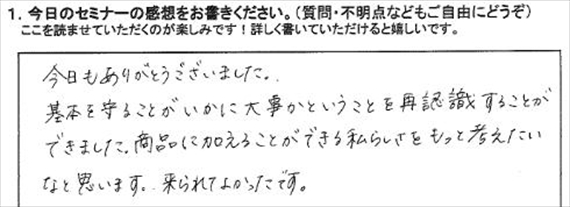 1. 今日のセミナーの感想をお書きください。（質問・不明点などもご自由にどうぞ）
ここを読ませていただくのが楽しみです！詳しく書いていただけると嬉しいです。
今日もありがとうございました。
基本を守ることがいかに大事かということを再認識することが
できました。商品に加えることができる私らしさをもっと考えたい
なと思います。来られてよかったです。